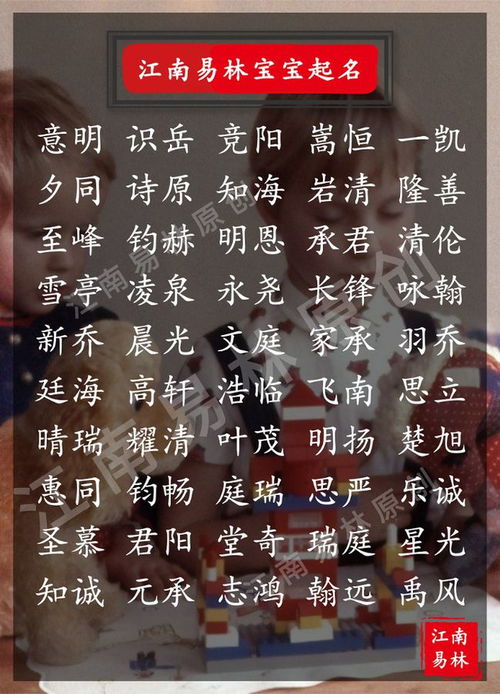 江南易林宝宝起名
意明 识岳 竞阳 嵩恒 一凯
夕同 诗原 知海 岩清 隆善
至峰 钧赫 明恩 承君 清伦
雪亭 凌泉 永尧 长锋 咏翰
新乔 晨光 文庭 家承 羽乔
廷海 高轩 浩临 飞南 思立
晴瑞 耀清 叶茂 明扬 楚旭
惠同 钧畅 庭瑞 思严 乐诚
圣慕 君阳 堂奇 瑞庭 星光
知诚 元承 志鸿 翰远 禹风
江南易林原创
江南易林原创
江南易林原创
江南
易林